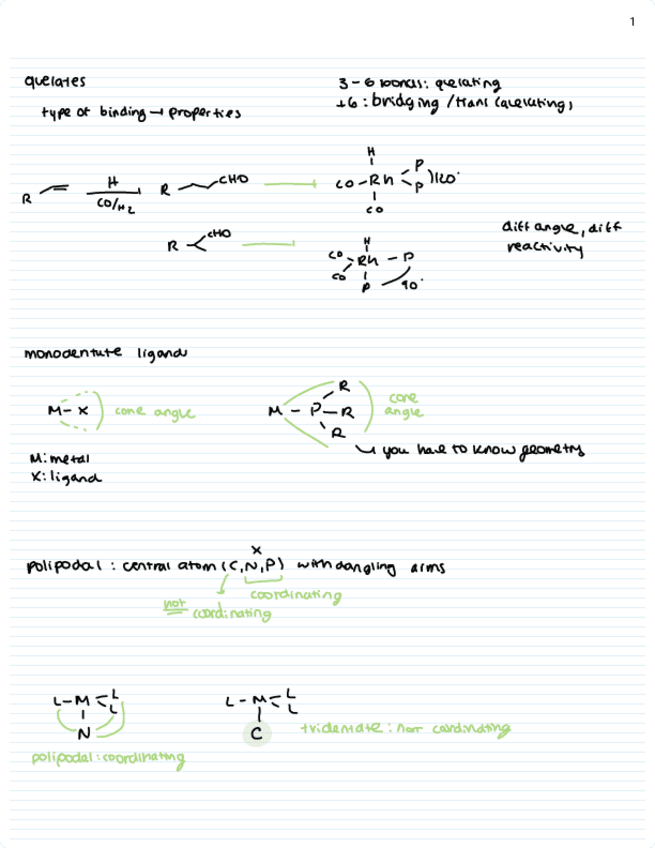 1
quelates
3-6 bonds: quelating
type of binding → properties
+6: bridging / trans (quelating)
H
R
H
CO/H2
R
CHO
CO-Rh
P
P
120°
CO
R
CHO
diff angle, diff
reactivity
H
CO
Rh - P
CO
P
90°
monodentate ligand
M-X
cone angle
M - P - R
R
R
cone
angle
you have to know geometry
M: metal
X: ligand
X
polipodal: central atom (C,N,P) with dangling arms
coordinating
not coordinating
L-M
L
L
N
L-M
L
L
C
tridentate: non cordinating
polipodal: coordinating